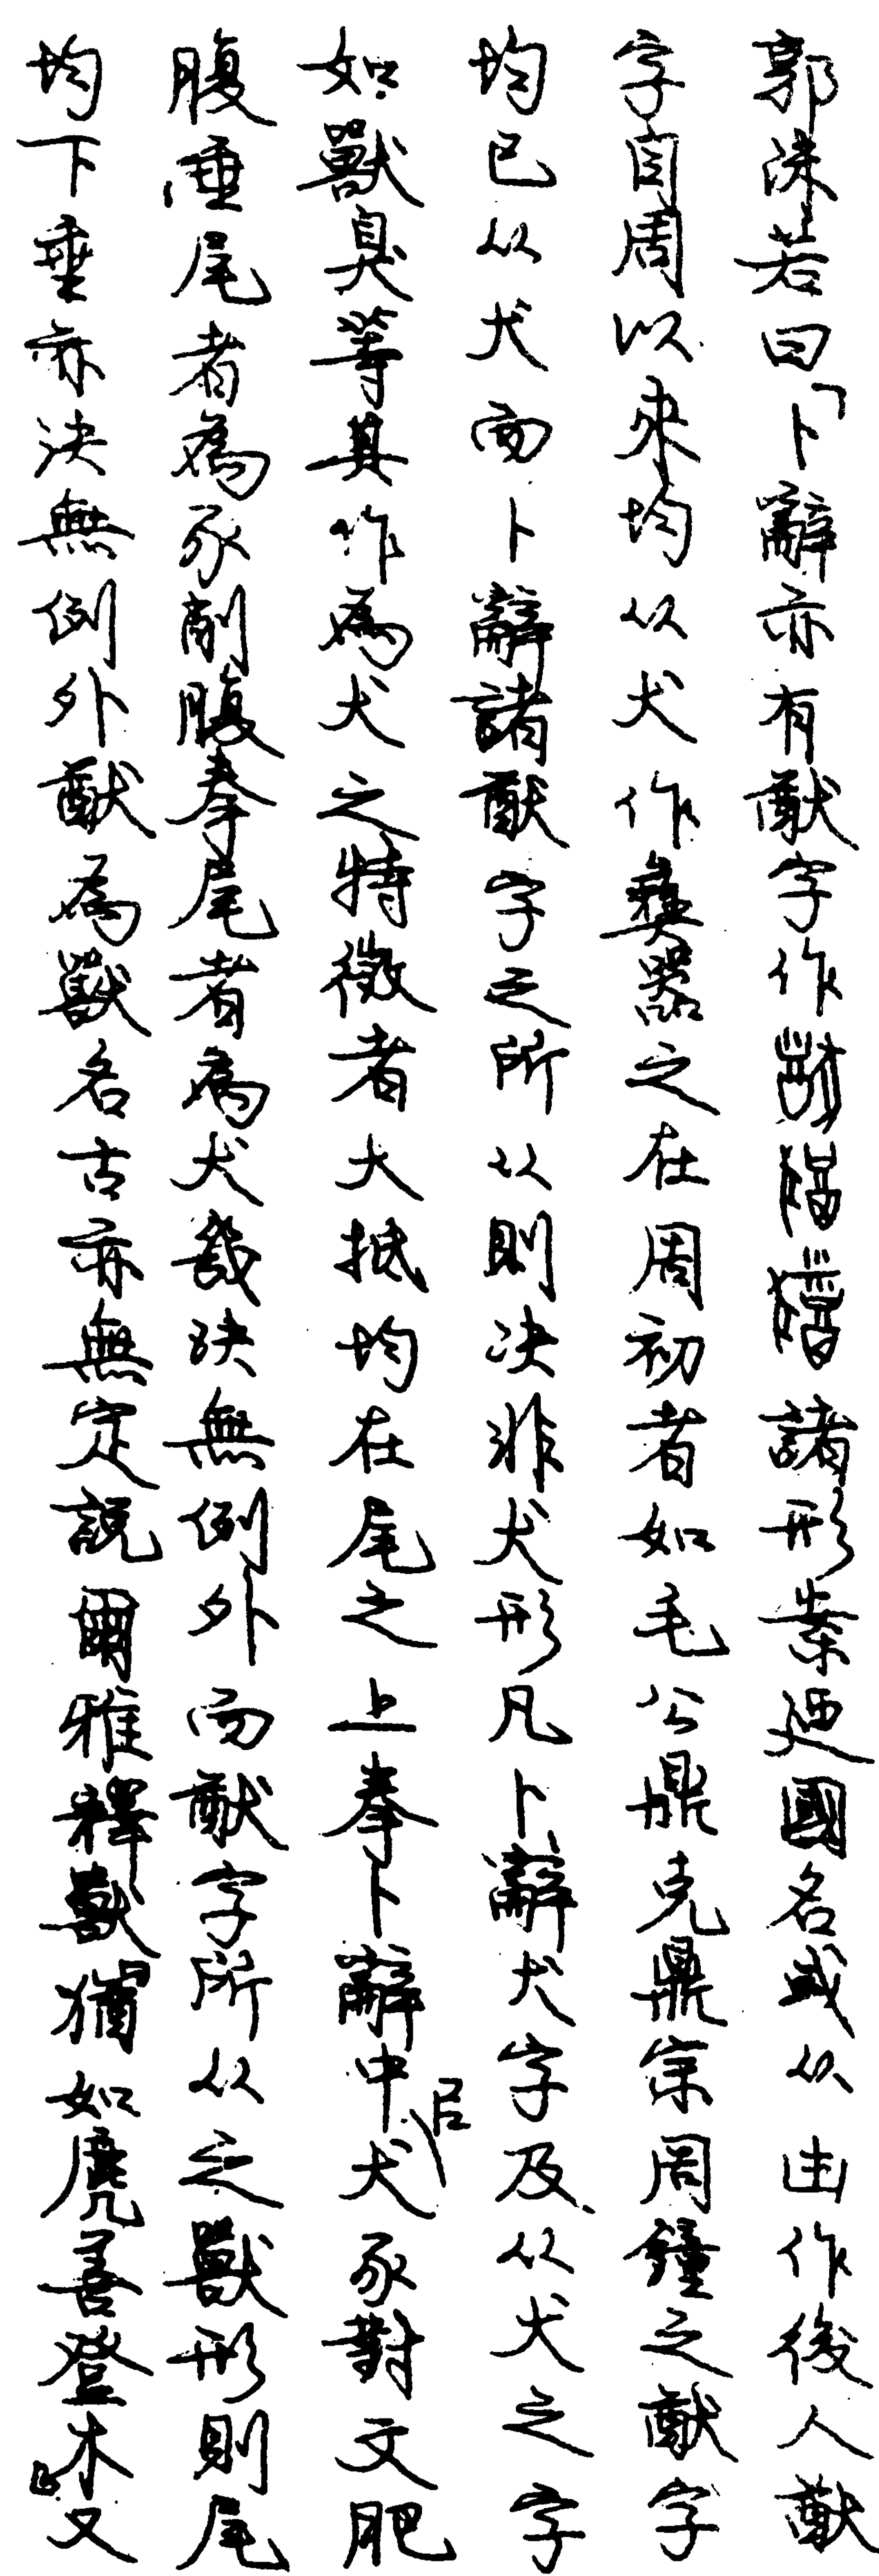 郭沫若曰「卜辭亦有猷字作諸形案迺國名或从由作後人猷
字自周以來均从犬作彝器之在周初者如毛公鼎克鼎宗周鐘之猷字
均已从犬而卜辭諸猷字之所从則決非犬形凡卜辭犬字及从犬之字
如獸臭等其作為犬之特徵者大抵均在尾之上拳卜辭中犬豕對文肥
腹垂尾者為豕削腹拳尾者為犬幾決無例外而猷字所从之獸形則尾
均下垂亦決無例外猷為獸名古亦無定說爾雅釋獸猶如麂善登木」又